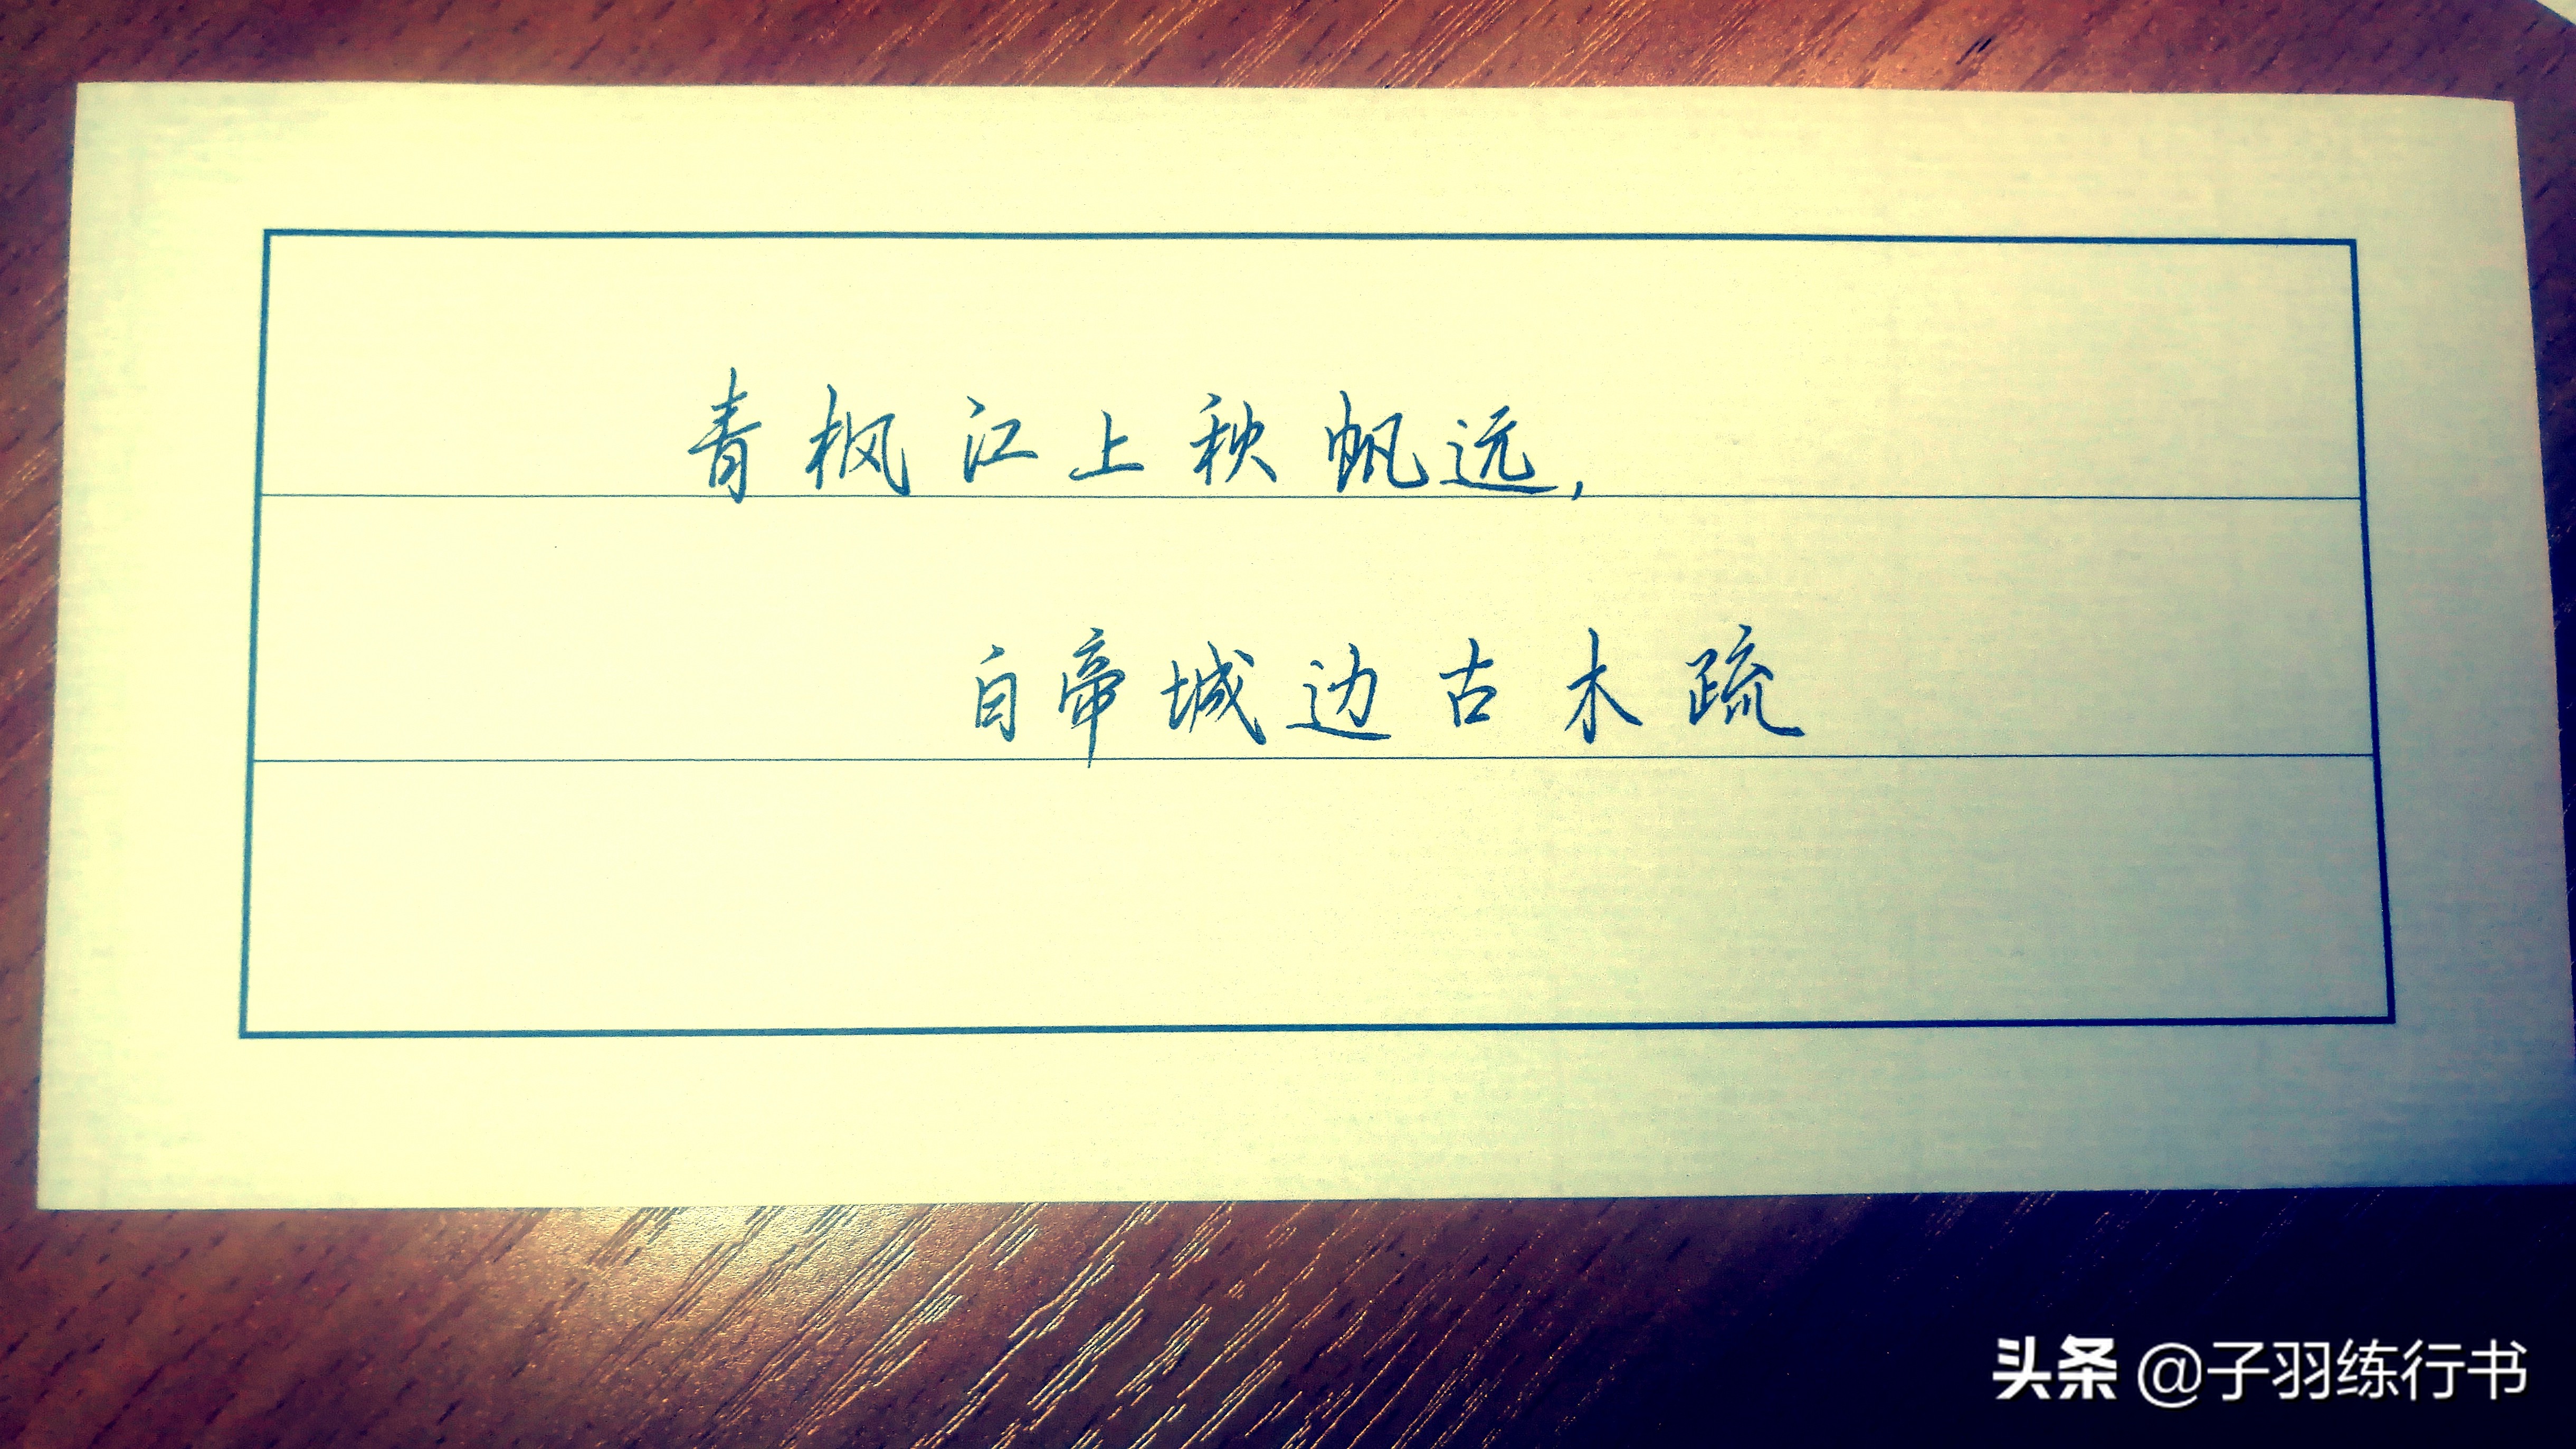 青枫江上秋帆远,
白帝城边古木疏
头条 @子羽练行书